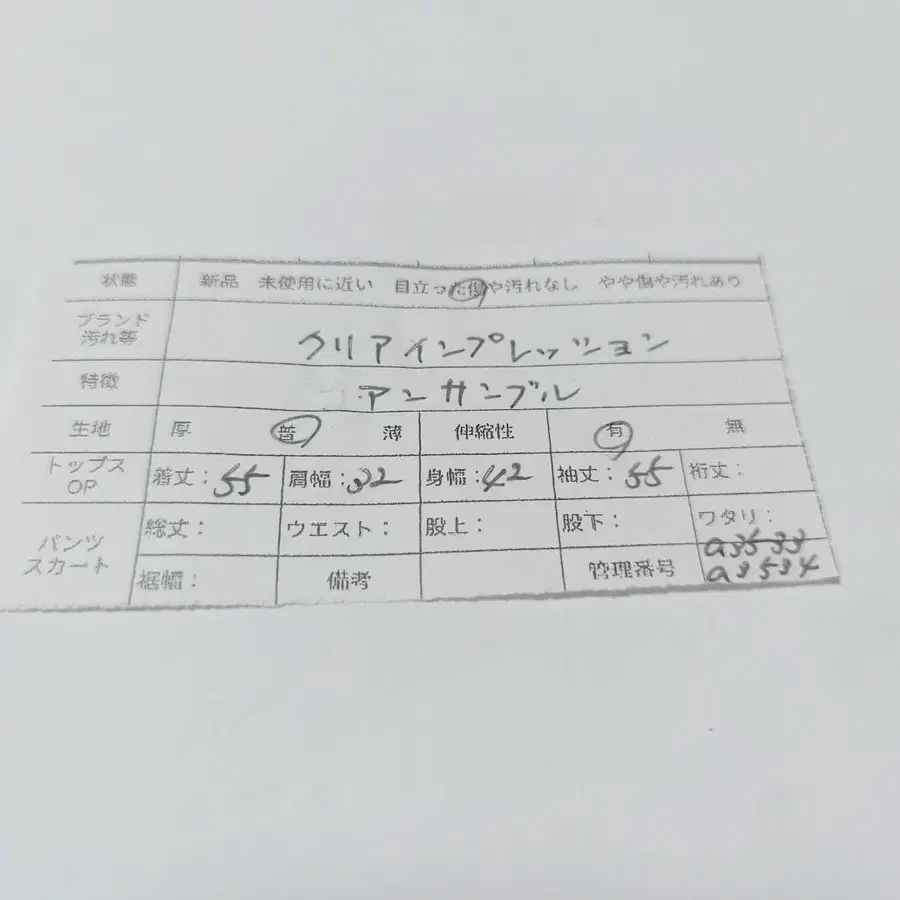 状態 新品 未使用に近い 目立った傷や汚れなし やや傷や汚れあり
ブランド
汚れ等
クリアインプレッション
特徴 アンサンブル
生地 厚 普 薄 伸縮性 有 無
トップス
OP
着丈：55 肩幅：32 身幅：42 袖丈：55 裄丈：
パンツ
スカート
総丈： ウエスト： 股上： 股下： ワタリ：
裾幅： 備考 管理番号
a3533
a3534